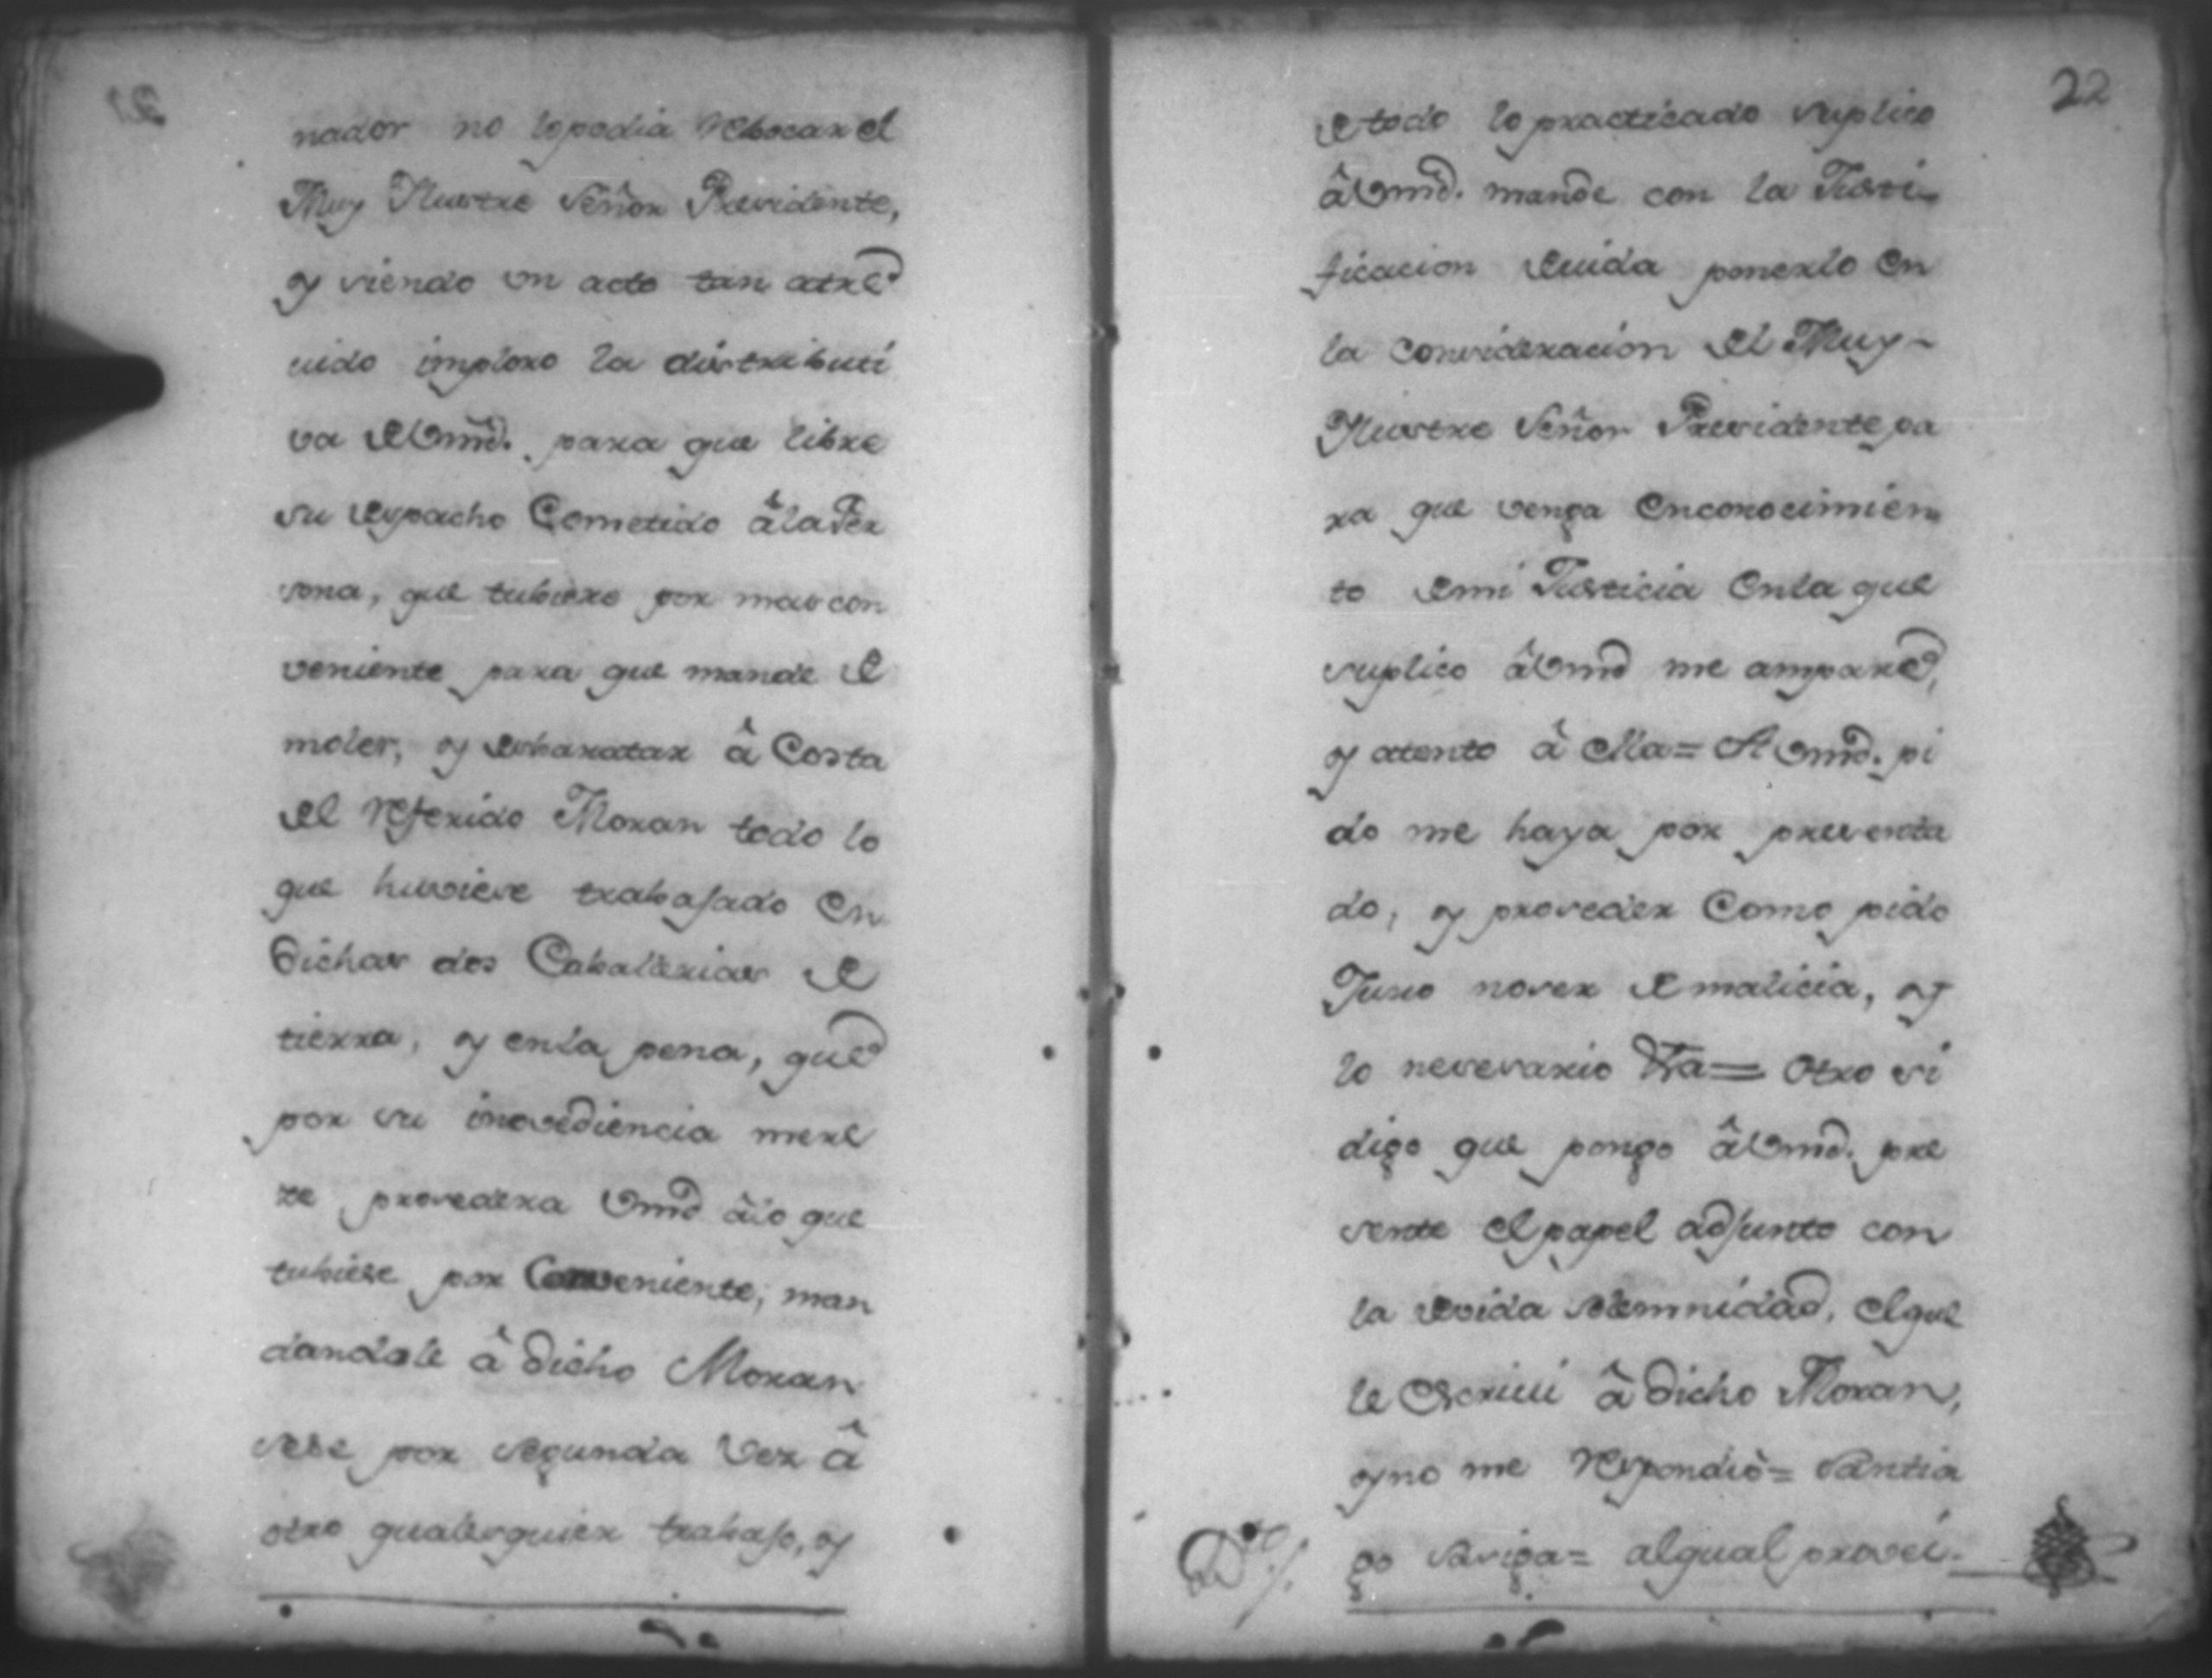 nador no lo podia rebocar el
Muy Ylustre Señor Presidente,
y viendo un acto tan atre
uido imploro la distributi
va de Vmd. para que libre
su despacho Cometido â la Per
sona, que tubiere por mas con
veniente para que mande de
moler, y desbaratar â Costa
del referido Moran todo lo
que huviese trabajado En
dichas dos Caballerias de
tierra, y en la pena, que
por su inovediencia mere
ze provedera Vmd â lo que
tubiese por Conveniente, man
dandole â dicho Moran
sese por segunda Vez â
otro qualesquier trabajo, y
22
de todo lo practicado suplico
â Vmd. mande con la Justi
ficacion deuida ponerlo En
la consideracion del Muy
Ylustre Señor Presidente pa
ra que venga En conocimien
to de mi Justicia En la que
suplico â Vmd me ampare,
y atento â ella = A Vmd. pi
do me haya por presenta
do, y proveder Como pido
Juro no ser de malicia, y
lo nesesario Vta = Otro si
digo que pongo â Vmd. pre
sente el papel adjunto con
la devida solemnidad, el que
le Escriui â dicho Moran,
y no me respondiò = Santia
go Barriga = al qual provei